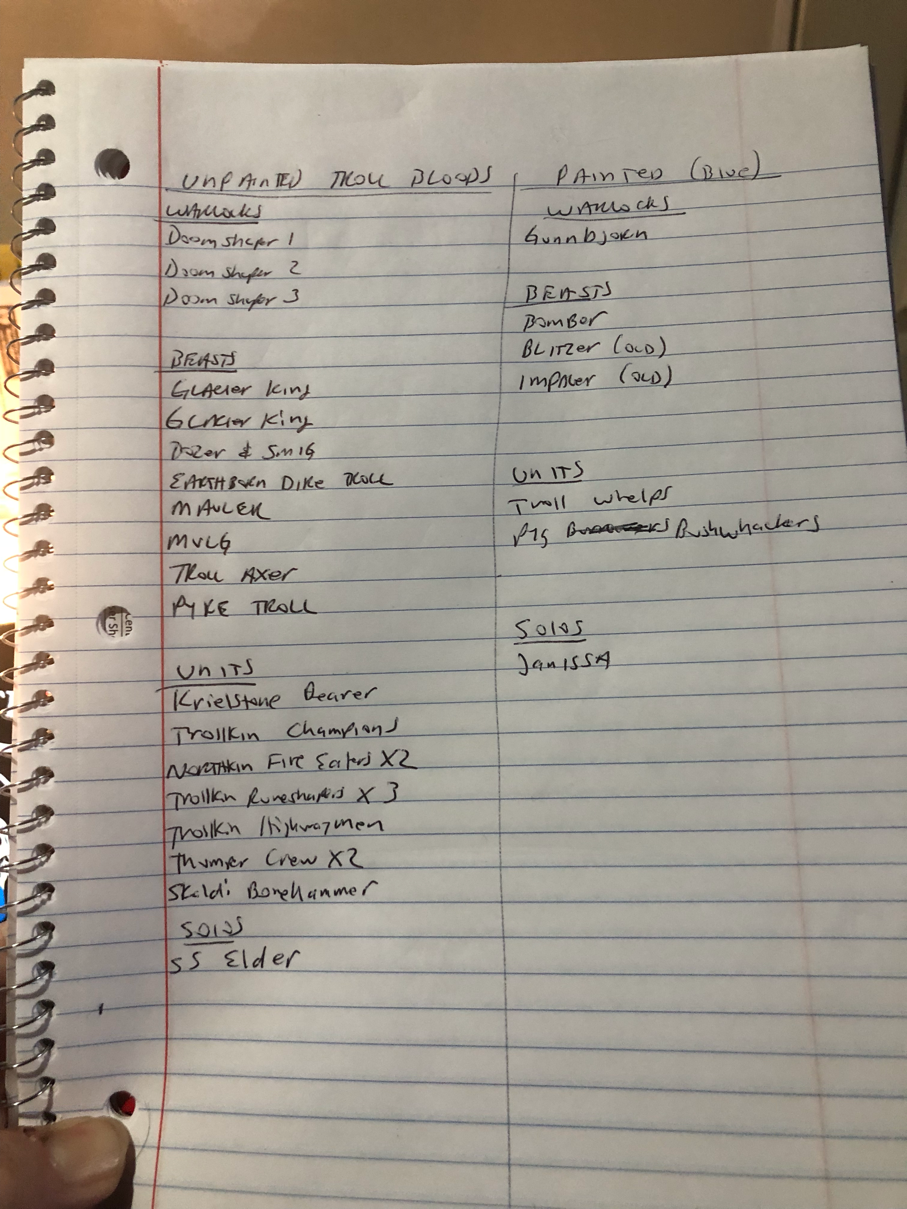 UNPAINTED TROLL BLOODS
WARlocks
Doomshaper 1
Doom shaper 2
Doom shaper 3
BEASTS
GLACIER King
GLACIER King
Dozer & Smig
EARTHBORN DIRE TROLL
MAULER
MULG
TROLL AXER
PYRE TROLL
UNITS
Krielstone Bearer
Trollkin Champions
NORTHKIN FIRE Eaters X2
Trollkin Runeshapers X 3
Trollkin Highwaymen
Thumper Crew X2
Skaldi Bonehammer
SOLOS
SS Elder
PAINTED (Blue)
WARlocks
Gunnbjorn
BEASTS
BomBer
BLITZER (OLD)
IMPALER (OLD)
UNITS
Troll whelps
Pyg Bushwhackers
SOLOS
JANISSA